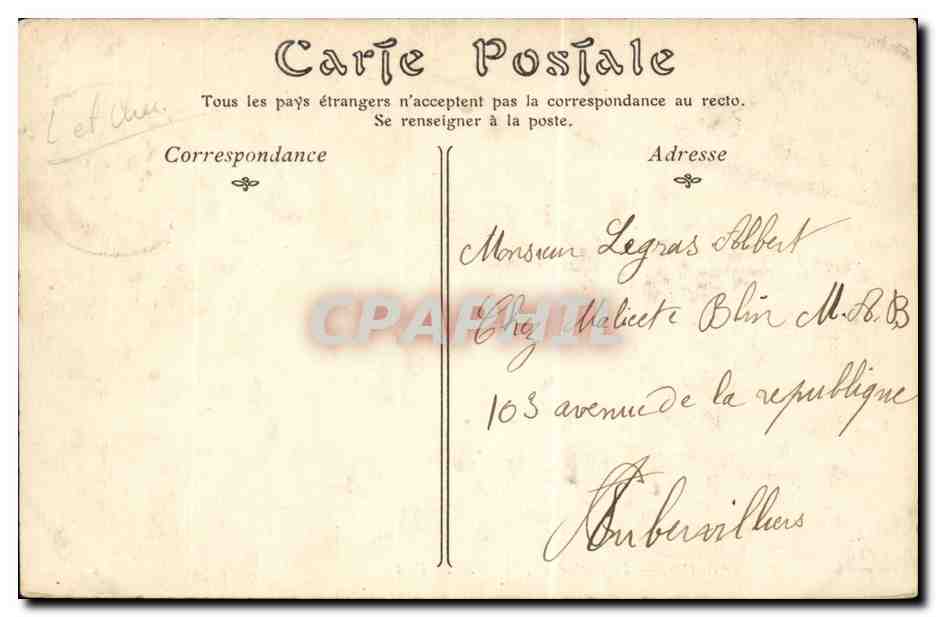 Carte Postale
Tous les pays étrangers n'acceptent pas la correspondance au recto.
Se renseigner à la poste.
L et Cher.
Correspondance
Adresse
Monsieur Legras Albert
CPAPHIL
Chez Malicet Blin M. A. B
103 avenue de la republique
Aubervilliers